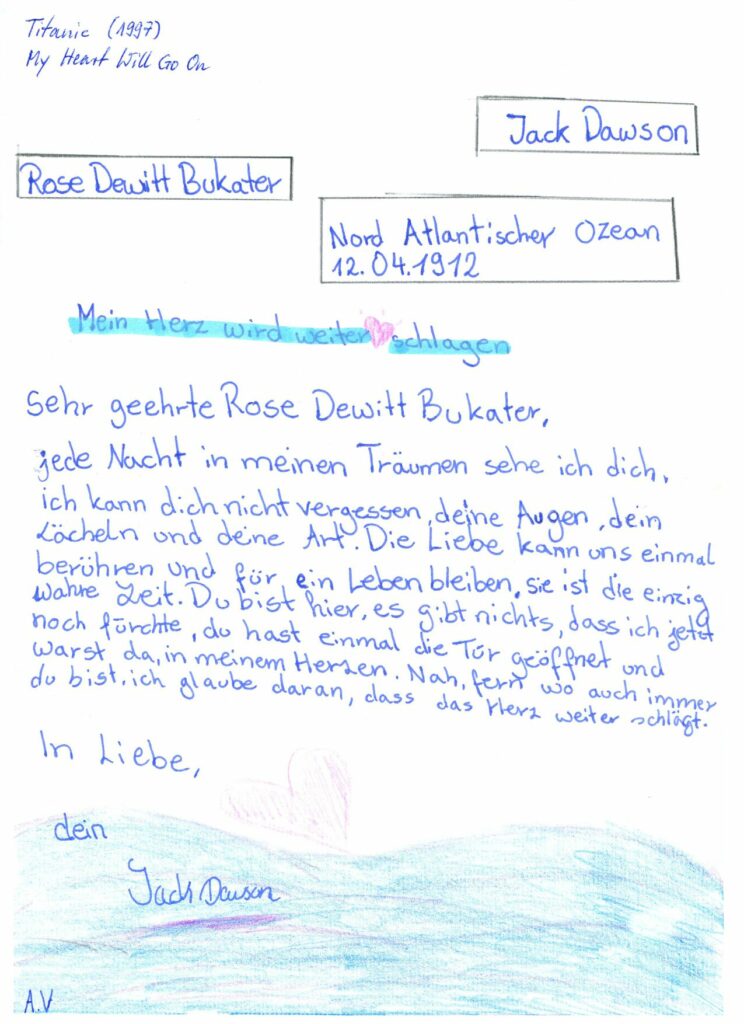 Titanic (1997)
My Heart Will Go On
Jack Dawson
Rose Dewitt Bukater
Nord Atlantischer Ozean
12.04.1912
Mein Herz wird weiter schlagen
Sehr geehrte Rose Dewitt Bukater,
jede Nacht in meinen Träumen sehe ich dich,
ich kann dich nicht vergessen, deine Augen, dein
Lächeln und deine Art. Die Liebe kann uns einmal
berühren und für ein Leben bleiben, sie ist die einzig
wahre Zeit. Du bist hier, es gibt nichts, dass ich jetzt
noch fürchte, du hast einmal die Tür geöffnet und
warst da, in meinem Herzen. Nah, fern wo auch immer
du bist, ich glaube daran, dass das Herz weiter schlägt.
In Liebe,
dein
Jack Dawson
A.V